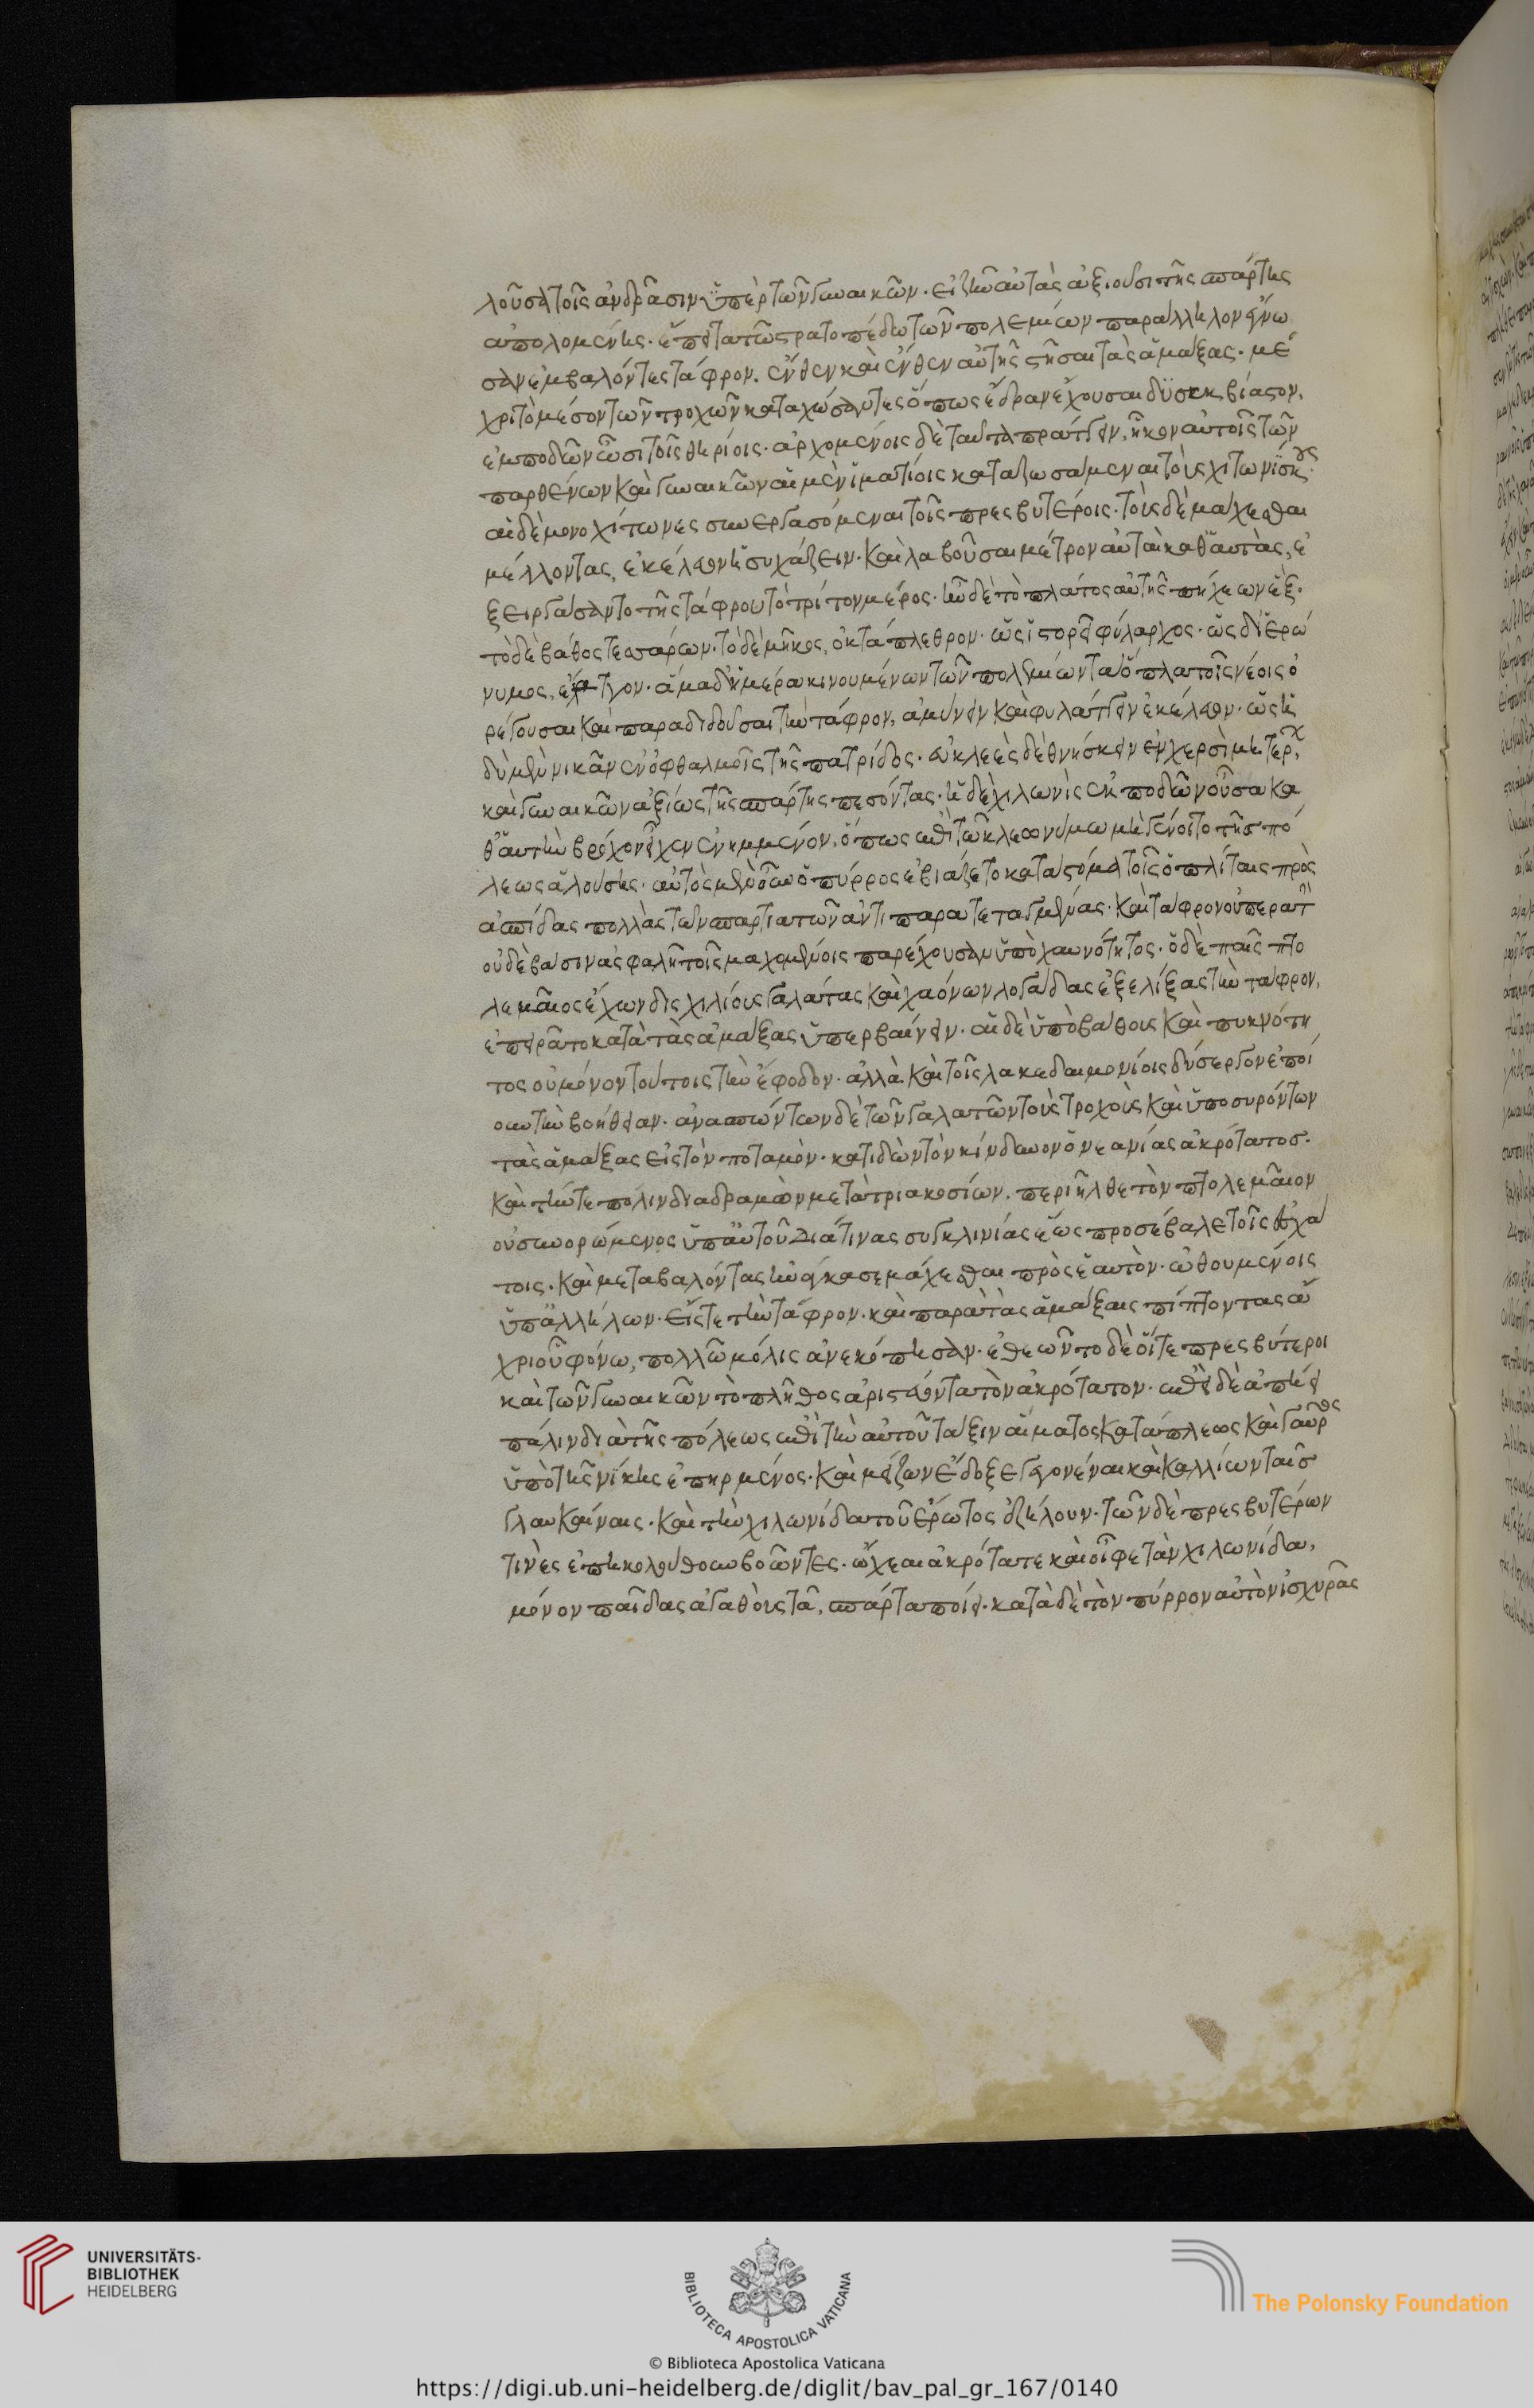 λοῦσα τοῖς ἀνδράσιν ὑπὲρ τῶν γυναικῶν· εἰ ζῆν αὐτὰς ἀξιοῦσι τῆς σπάρτης
ἀπολομένης· ἔπειτα τῶ στρατοπέδω τῶν πολεμίων παράλληλον ἔγνω
σαν ἐμβαλόντες τάφρον. ἔνθεν καὶ ἔνθεν αὐτῆς στῆσαι τὰς ἁμάξας· με
χρι τὸ μέσον τῶν τροχῶν καταχώσαντες ὅπως ἕδραν ἔχουσαι δυσεκβίαστον,
ἐμποδὼν ὦσι τοῖς θηρίοις· ἀρχομένοις δὲ ταῦτα πράττειν, ἧκον αὐτοῖς τῶν
παρθένων καὶ γυναικῶν αἱ μὲν ἱματίοις καταζωσάμεναι τοὺς χιτωνίσκους·
αἱ δὲ μονοχίτωνες συνεργασόμεναι τοῖς πρεσβυτέροις· τοὺς δὲ μάχεσθαι
μέλλοντας, ἐκέλευον ἡσυχάζειν· καὶ λαβοῦσαι μέτρον αὐταὶ καθ' αὑτὰς, ἐ
ξειργάσαντο τῆς τάφρου τὸ τρίτον μέρος· ἦν δὲ τὸ πλάτος αὐτῆς πήχεων ἓξ·
τὸ δὲ βάθος τεσσάρων· τὸ δὲ μῆκος, ὀκτάπλεθρον· ὡς ἱστορεῖ φύλαρχος· ὡς δ' ἱερώ
νυμος, ἔλαττον· ἅμα δ' ἡμέρα κινουμένων τῶν πολεμίων τὰ ὅπλα τοῖς νέοις ὀ
ρέγουσαι καὶ παραδιδοῦσαι τὴν τάφρον, ἀμύνειν καὶ φυλάττειν ἐκέλευον· ὡς ἡ
δὺ μὲν νικᾶν ἐν ὀφθαλμοῖς τῆς πατρίδος· εὐκλεὲς δὲ θνήσκειν ἐν χερσὶ μητέρων
καὶ γυναικῶν ἀξίως τῆς σπάρτης πεσόντας· ἡ δὲ χιλωνὶς ἐκποδὼν οὖσα κα
θ' αὑτὴν βρόχον εἶχεν ἐνημμένον, ὅπως ἐπὶ τῶ κλεωνύμω μὴ γένοιτο τῆς πό
λεως ἁλούσης· αὐτὸς μὲν οὖν ὁ πύρρος ἐβιάζετο κατὰ στόμα τοῖς ὁπλίταις πρὸς
ἀσπίδας πολλὰς τῶν σπαρτιατῶν ἀντιπαρατεταγμένας· καὶ τάφρον οὐ περατὴν
οὐδὲ βάσιν ἀσφαλῆ τοῖς μαχομένοις παρέχουσαν ὑπὸ χαυνότητος· ὁ δὲ παῖς πτο
λεμαῖος ἔχων δισχιλίους γαλάτας καὶ χαόνων λογάδας ἐξελίξας τὴν τάφρον,
ἐπειρᾶτο κατὰ τὰς ἁμάξας ὑπερβαίνειν· αἱ δὲ ὑπὸ βάθους καὶ πυκνότη
τος οὐ μόνον τούτοις τὴν ἔφοδον· ἀλλὰ καὶ τοῖς λακεδαιμονίοις δύσεργον ἐποί
ουν τὴν βοήθειαν· ἀνασπώντων δὲ τῶν γαλατῶν τοὺς τροχοὺς καὶ ὑποσυρόντων
τὰς ἁμάξας εἰς τὸν ποταμὸν· κατιδὼν τὸν κίνδυνον ὁ νεανίας ἀκρότατος·
καὶ τήν τε πόλιν διαδραμὼν μετὰ τριακοσίων, περιῆλθε τὸν πτολεμαῖον
οὐ συνορώμενος ὑπ' αὐτοῦ διά τινας συγκλινίας ἕως προσέβαλε τοῖς ἐσχά
τοις· καὶ μεταβαλόντας ἠνάγκασε μάχεσθαι πρὸς ἑαυτὸν· ὠθουμένοις
ὑπ' ἀλλήλων· εἴς τε τὴν τάφρον· καὶ παρὰ τὰς ἁμάξαις πίπτοντας ἄ
χρι οὗ φόνω, πολλῶ μόλις ἀνεκόπησαν· ἐθεῶντο δὲ οἵ τε πρεσβύτεροι
καὶ τῶν γυναικῶν τὸ πλῆθος ἀριστεύοντα τὸν ἀκρότατον· ἐπεὶ δὲ ἀπήει
πάλιν διὰ τῆς πόλεως ἐπὶ τὴν αὐτοῦ τάξιν αἵματος κατάπλεως καὶ γαῦρος
ὑπὸ τῆς νίκης ἐπηρμένος· καὶ μείζων ἔδοξε γεγονέναι καὶ καλλίων ταῖς
γλαυκαίναις· καὶ τὴν χιλωνίδα τοῦ ἔρωτος ἐζήλουν· τῶν δὲ πρεσβυτέρων
τινὲς ἐπηκολούθουν βοῶντες· ὤχεαι ἀκρότατε καὶ οἶφε τὰν χιλωνίδα,
μόνον παῖδας ἀγαθοὺς τᾶ, σπάρτα ποίει· κατὰ δὲ τὸν πύρρον αὐτὸν ἰσχυρᾶς
UNIVERSITÄTS-
BIBLIOTHEK
HEIDELBERG
BIBLIOTECA APOSTOLICA VATICANA
The Polonsky Foundation
© Biblioteca Apostolica Vaticana
https://digi.ub.uni-heidelberg.de/diglit/bav_pal_gr_167/0140